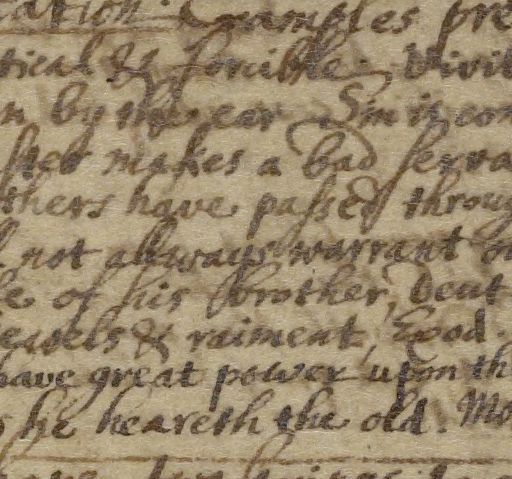 cation. Examples pre
tical & forcible. Divit
n by the ear Sin is con
ster makes a bad serva
thers have passed throug
l not allways warrant
e of his brother, Deut
ewels & raiment, Exod.
have great power upon th
s he heareth the old. Mo